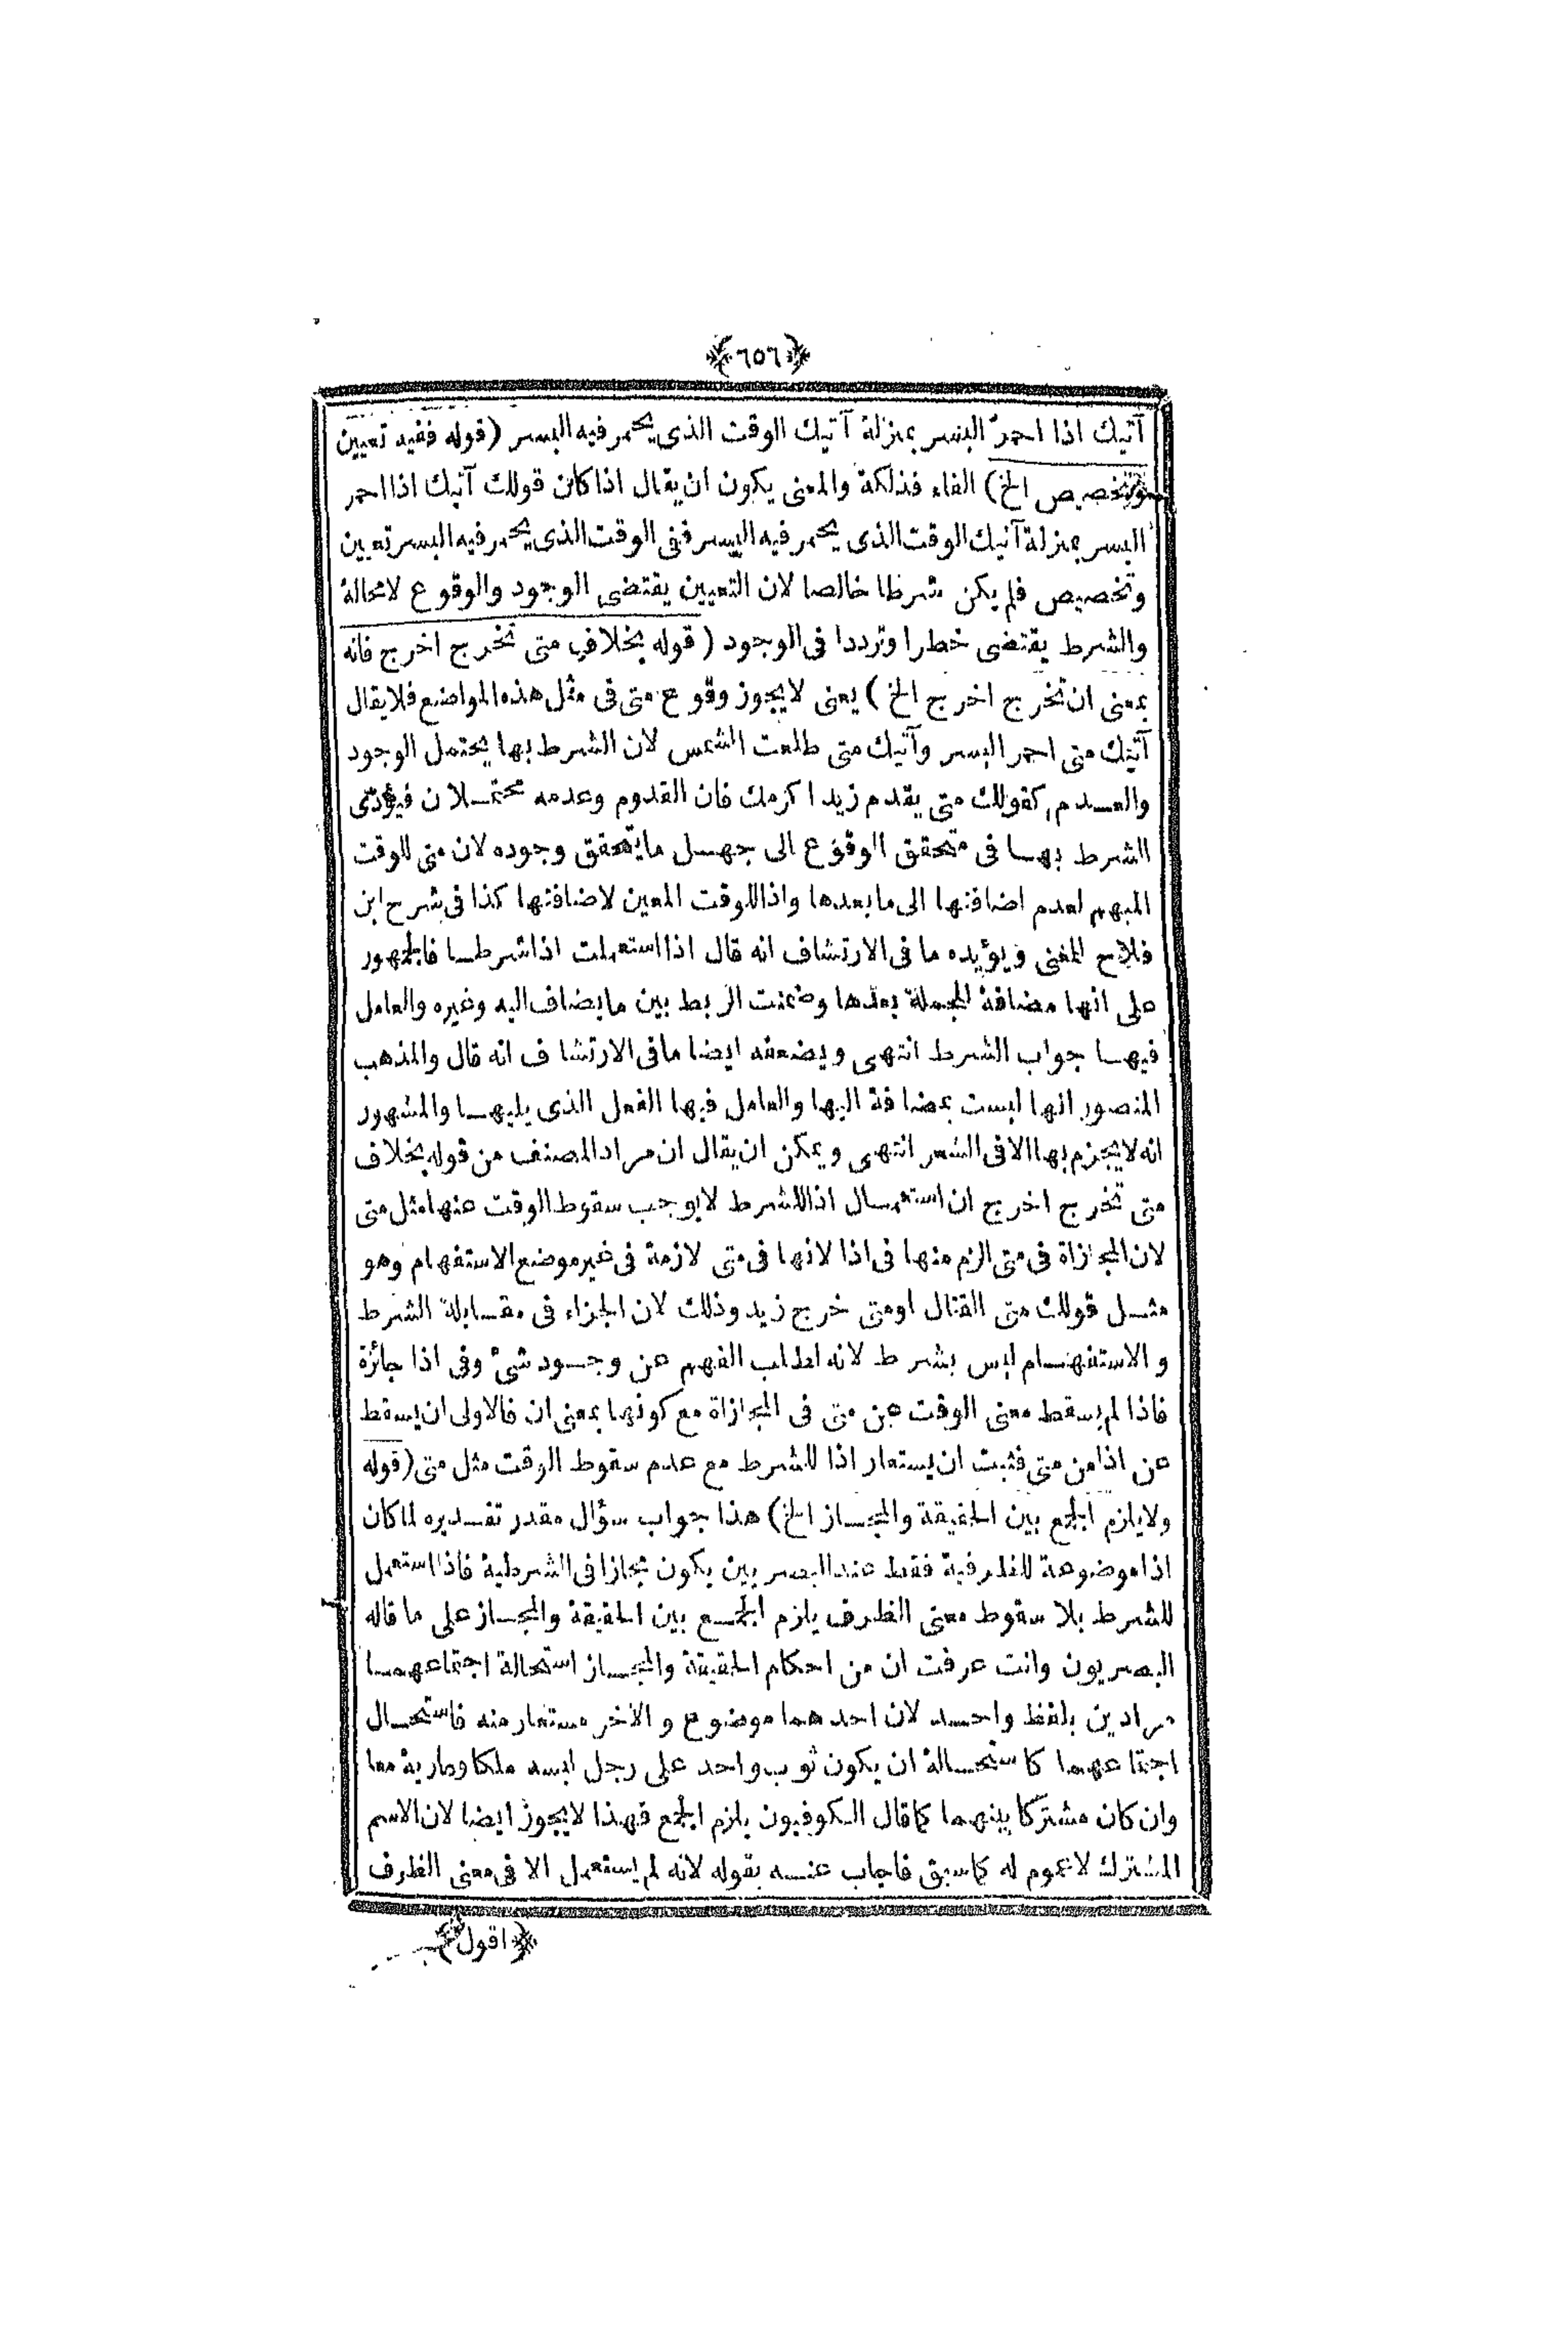 ﴿٦٥٦﴾
آتيك اذا احمر البسر بمنزلة آتيك الوقت الذى يحمر فيه البسر (قوله ففيه تعيين
وتخصيص الخ) الفاء فذلكة والمعنى يكون ان يقال اذا كان قولك آتيك اذا احمر
البسر بمنزلة آتيك الوقت الذى يحمر فيه البسر ففى الوقت الذى يحمر فيه البسر تعيين
وتخصيص فلم يكن شرطا خالصا لان التعيين يقتضى الوجود والوقوع لامحالة
والشرط يقتضى خطرا وترددا فى الوجود (قوله بخلاف متى تخرج اخرج فانه
بمعنى ان تخرج اخرج الخ) يعنى لايجوز وقوع متى فى مثل هذه المواضع فلايقال
آتيك متى احمر البسر وآتيك متى طلعت الشمس لان الشرط بها يحتمل الوجود
والعدم كقولك متى يقدم زيد اكرمك فان القدوم وعدمه محتملان فيؤدى
الشرط بها فى متحقق الوقوع الى جهل مايتحقق وجوده لان متى للوقت
المبهم لعدم اضافتها الى مابعدها واذا للوقت المعين لاضافتها كذا فى شرح ابن
فلاح المغنى ويؤيده ما فى الارتشاف انه قال اذا استعملت اذا شرطا فالجمهور
على انها مضافة للجملة بعدها وضمنت الربط بين مايضاف اليه وغيره والعامل
فيها جواب الشرط انتهى ويضعفه ايضا مافى الارتشاف انه قال والمذهب
المنصور انها ليست بمضافة اليها والعامل فيها الفعل الذى يليها والمشهور
انه لايجزم بها الا فى الشعر انتهى ويمكن ان يقال ان مراد المصنف من قوله بخلاف
متى تخرج اخرج ان استعمال اذا للشرط لايوجب سقوط الوقت عنها مثل متى
لان المجازاة فى متى الزم منها فى اذا لانها فى متى لازمة فى غير موضع الاستفهام وهو
مثل قولك متى القتال او متى خرج زيد وذلك لان الجزاء فى مقابلة الشرط
والاستفهام ليس بشرط لانه لطلب الفهم عن وجود شئ وفى اذا جائزة
فاذا لم يسقط معنى الوقت عن متى فى المجازاة مع كونها بمعنى ان فالاولى ان يسقط
عن اذا من متى فثبت ان يستعار اذا للشرط مع عدم سقوط الوقت مثل متى (قوله
ولايلزم الجمع بين الحقيقة والمجاز الخ) هذا جواب سؤال مقدر تقديره لما كان
اذا موضوعة للظرفية فقط عند البصريين يكون مجازا فى الشرطية فاذا استعمل
للشرط بلا سقوط معنى الظرف يلزم الجمع بين الحقيقة والمجاز على ما قاله
البصريون وانت عرفت ان من احكام الحقيقة والمجاز استحالة اجتماعهما
مرادين بلفظ واحد لان احدهما موضوع والآخر مستعار منه فاستحال
اجتماعهما كاستحالة ان يكون ثوب واحد على رجل لبسه ملكا وعارية معا
وان كان مشتركا بينهما كما قال الكوفيون يلزم الجمع فهذا لايجوز ايضا لان الاسم
المشترك لاعموم له كما سبق فاجاب عنه بقوله لانه لم يستعمل الا فى معنى الظرف
﴿اقول﴾